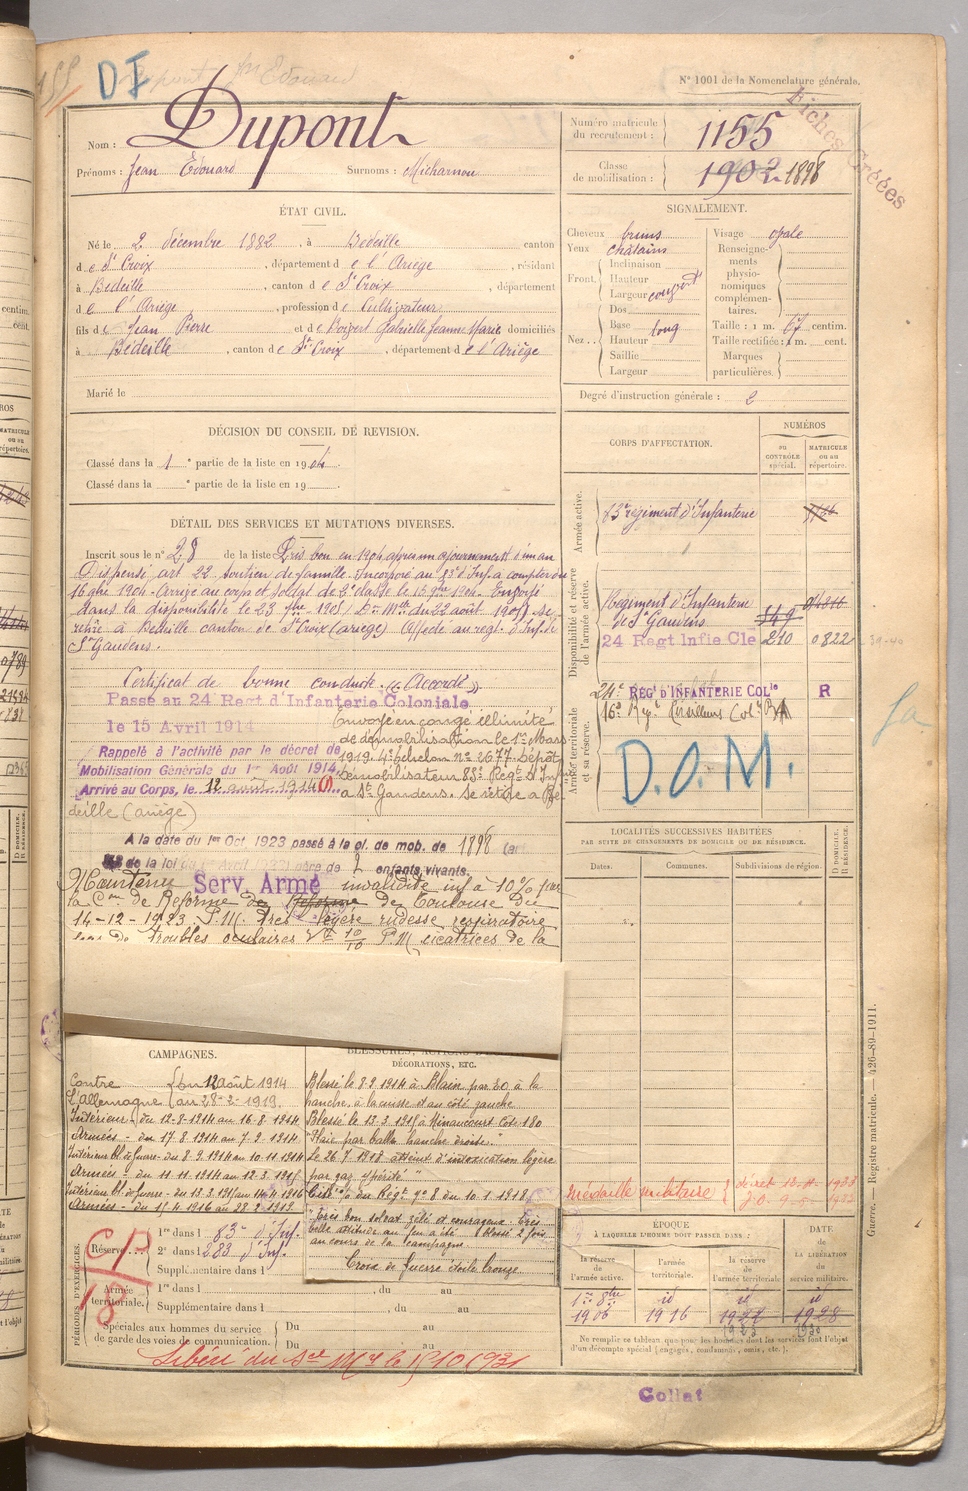 N° 1001 de la Nomenclature générale.
155
DI
Fiches Créées
Nom : Dupont
Prénoms : Jean Édouard Surnoms : Micharnou
Numéro matricule du recrutement : 1155
Classe de mobilisation : 1902 1898
ÉTAT CIVIL.
Né le 2 décembre 1882, à Bédeille, canton
de Ste Croix, département de l'Ariège, résidant
à Bédeille, canton de Ste Croix, département
de l'Ariège, profession de Cultivateur
fils de Jean Pierre et de Gabrielle Jeanne Marie domiciliés
à Bédeille, canton de Ste Croix, département de l'Ariège
Marié le
SIGNALEMENT.
Cheveux bruns
Yeux châtains
Front. Inclinaison
Hauteur
Largeur
Nez.. Dos
Base long
Hauteur
Saillie
Largeur
Visage ovale
Renseignements physionomiques complémentaires.
Taille : 1 m. 67 centim.
Taille rectifiée : 1 m. cent.
Marques particulières.
Degré d'instruction générale : 2
DÉCISION DU CONSEIL DE REVISION.
Classé dans la 1e partie de la liste en 1904.
Classé dans la e partie de la liste en 19
DÉTAIL DES SERVICES ET MUTATIONS DIVERSES.
Inscrit sous le n° 28 de la liste Pris bon en 1904 après un ajournement d'un an
Dispensé art 22. Soutien de famille. Incorporé au 83e d'Inf. à compter du
16 9bre 1904. Arrivé au corps et soldat de 2e classe le 15 9bre 1904. Envoyé
dans la disponibilité le 23 1905 Dn Mlle du 22 août 1905 se
retire à Bédeille canton de Ste Croix (Ariège) Affecté au régt d'Inf. de
St Gaudens.
Certificat de bonne conduite "Accordé".
Passé au 24e Regt d'Infanterie Coloniale
le 15 Avril 1914
Rappelé à l'activité par le décret de
Mobilisation Générale du 1er Août 1914
Arrivé au Corps, le 12 août 1914 (1)
Envoyé en congé illimité
de démobilisation le 1er Mars
1919. 4e échelon n° 2677 Dépôt
démobilisateur 83e Régt d'Inf
à St Gaudens. Se retire à Bé-
deille (Ariège)
A la date du 1er Oct 1923 passé à la cl. de mob. de 1898 (art
de la loi du 1er Avril 1923) père de 2 enfants vivants.
Maintenu Serv. Armé invalidité inf à 10% par
la Con de Réforme de Réforme de Toulouse du
14-12-1923. P.M. très légère rudesse respiratoire
de troubles oculaires V 10/10 P.M cicatrices de la
CORPS D'AFFECTATION.
NUMÉROS
au CONTRÔLE spécial.
MATRICULE ou au répertoire.
Armée active.
83e régiment d'Infanterie
Disponibilité et réserve de l'armée active.
Régiment d'Infanterie
de St Gaudens 549
24 Regt Infie Cle 210 0822
Armée territoriale et sa réserve.
24e REGt D'INFANTERIE COLle R
16e Régt Tirailleurs Col
D.O.M.
LOCALITÉS SUCCESSIVES HABITÉES
PAR SUITE DE CHANGEMENTS DE DOMICILE OU DE RÉSIDENCE.
Dates. Communes. Subdivisions de région. D DOMICILE. R RÉSIDENCE.
CAMPAGNES.
Contre l'Allemagne du 12 août 1914
au 28-2-1919.
Intérieur - du 12-8-1914 au 16-8-1914
Armées - du 17-8-1914 au 7-9-1914
Intérieur bl. de guerre - du 8-9-1914 au 10-11-1914
Armées - du 11-11-1914 au 12-3-1915
Intérieur bl. de guerre - du 13-3-1915 au 14-4-1916
Armées - du 15-4-1916 au 28-2-1919.
BLESSURES, ACTIONS
DÉCORATIONS, ETC.
Blessé le 8.9.1914 à Blain par EO à la
hanche, à la cuisse et au côté gauche
Blessé le 13-3-1915 à Minaucourt Cote 180
"Plaie par balle hanche droite."
Le 26-7-1918 atteint d'intoxication légère
par gaz "Ypérité"
Cité à l'o. du Régt n° 8 du 10-1-1918
"Très bon soldat zélé et courageux. Très
belle attitude au feu a été blessé 2 fois
au cours de la campagne
Croix de guerre étoile bronze.
Médaille militaire
PÉRIODES D'EXERCICES.
Réserve... 1re dans l 83e d'Inf.
2e dans l 283 d'Inf.
Supplémentaire dans l
Armée territoriale. 1re dans l , du au
Supplémentaire dans l , du au
Spéciales aux hommes du service de garde des voies de communication. Du au
Du au
CR
18
Libéré du Sce Mre le 15/10/1931
ÉPOQUE
À LAQUELLE L'HOMME DOIT PASSER DANS :
la réserve de l'armée active.
l'armée territoriale.
la réserve de l'armée territoriale
DATE DE LA LIBÉRATION du service militaire.
1er 8bre id id id
1906 1916 1922 1928
Ne remplir ce tableau que pour les hommes dont les services font l'objet
d'un décompte spécial (engagés, condamnés, omis, etc.).
Guerre. — Registre matricule. — 426-89-1911.
Collat